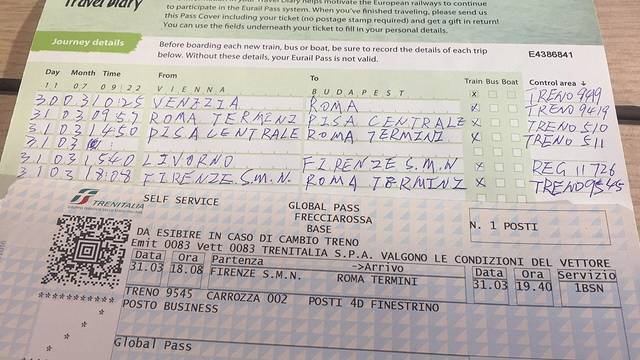 Travel Diary
in your Travel Diary helps motivate the European railways to continue
to participate in the Eurail Pass system. When you've finished traveling, please send us
this Pass Cover including your ticket (no postage stamp required) and get a gift in return!
You can use the fields underneath your ticket to fill in your personal details.
Journey details
Before boarding each new train, bus or boat, be sure to record the details of each trip
below. Without these details, your Eurail Pass is not valid.
E4386841
Day Month Time From To Train Bus Boat Control area ↓
11 07 09:22 VIENNA BUDAPEST x
30 03 10:25 VENEZIA ROMA x TRENO 9419
31 03 09 57 ROMA TERMINI PISA CENTRALE x TRENO 510
31 03 14 50 PISA CENTRALE ROMA TERMINI x TRENO 511
31 03
31 03 15 40 LIVORNO FIRENZE S.M.N x REG 11726
31 03 18:08 FIRENZE S.M.N. ROMA TERMINI x TRENO 9545
TRENITALIA
SELF SERVICE
GLOBAL PASS
FRECCIAROSSA
BASE
N. 1 POSTI
DA ESIBIRE IN CASO DI CAMBIO TRENO
Emit 0083 Vett 0083 TRENITALIA S.P.A. VALGONO LE CONDIZIONI DEL VETTORE
Data Ora Partenza ->Arrivo Data Ora Servizio
31.03 18.08 FIRENZE S.M.N. ROMA TERMINI 31.03 19.40 1BSN
TRENO 9545 CARROZZA 002 POSTI 4D FINESTRINO
POSTO BUSINESS
Global Pass